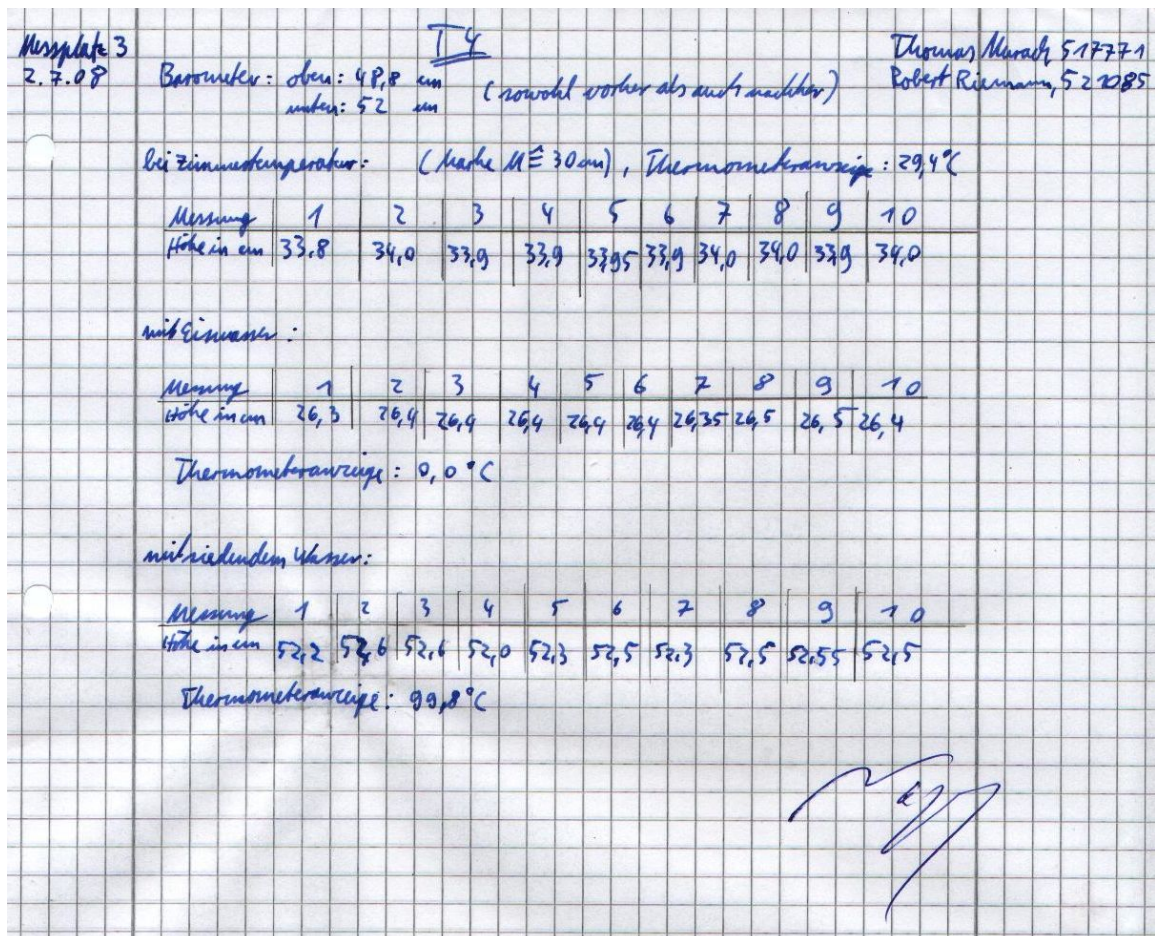 Messplatz 3
2.7.08
T4
Thomas Murach 517771
Robert Riemann, 521085
Barometer: oben: 48,8 cm
unten: 52 cm
(sowohl vorher als auch nachher)
bei Zimmertemperatur: (Marke M ≙ 30 cm), Thermometeranzeige: 29,4°C
Messung 1 2 3 4 5 6 7 8 9 10
Höhe in cm 33,8 34,0 33,9 33,9 33,95 33,9 34,0 34,0 33,9 34,0
mit Eiswasser:
Messung 1 2 3 4 5 6 7 8 9 10
Höhe in cm 26,3 26,4 26,4 26,4 26,4 26,4 26,35 26,5 26,5 26,4
Thermometeranzeige: 0,0°C
mit siedendem Wasser:
Messung 1 2 3 4 5 6 7 8 9 10
Höhe in cm 52,2 52,6 52,6 52,0 52,3 52,5 52,3 52,5 52,55 52,5
Thermometeranzeige: 99,8°C